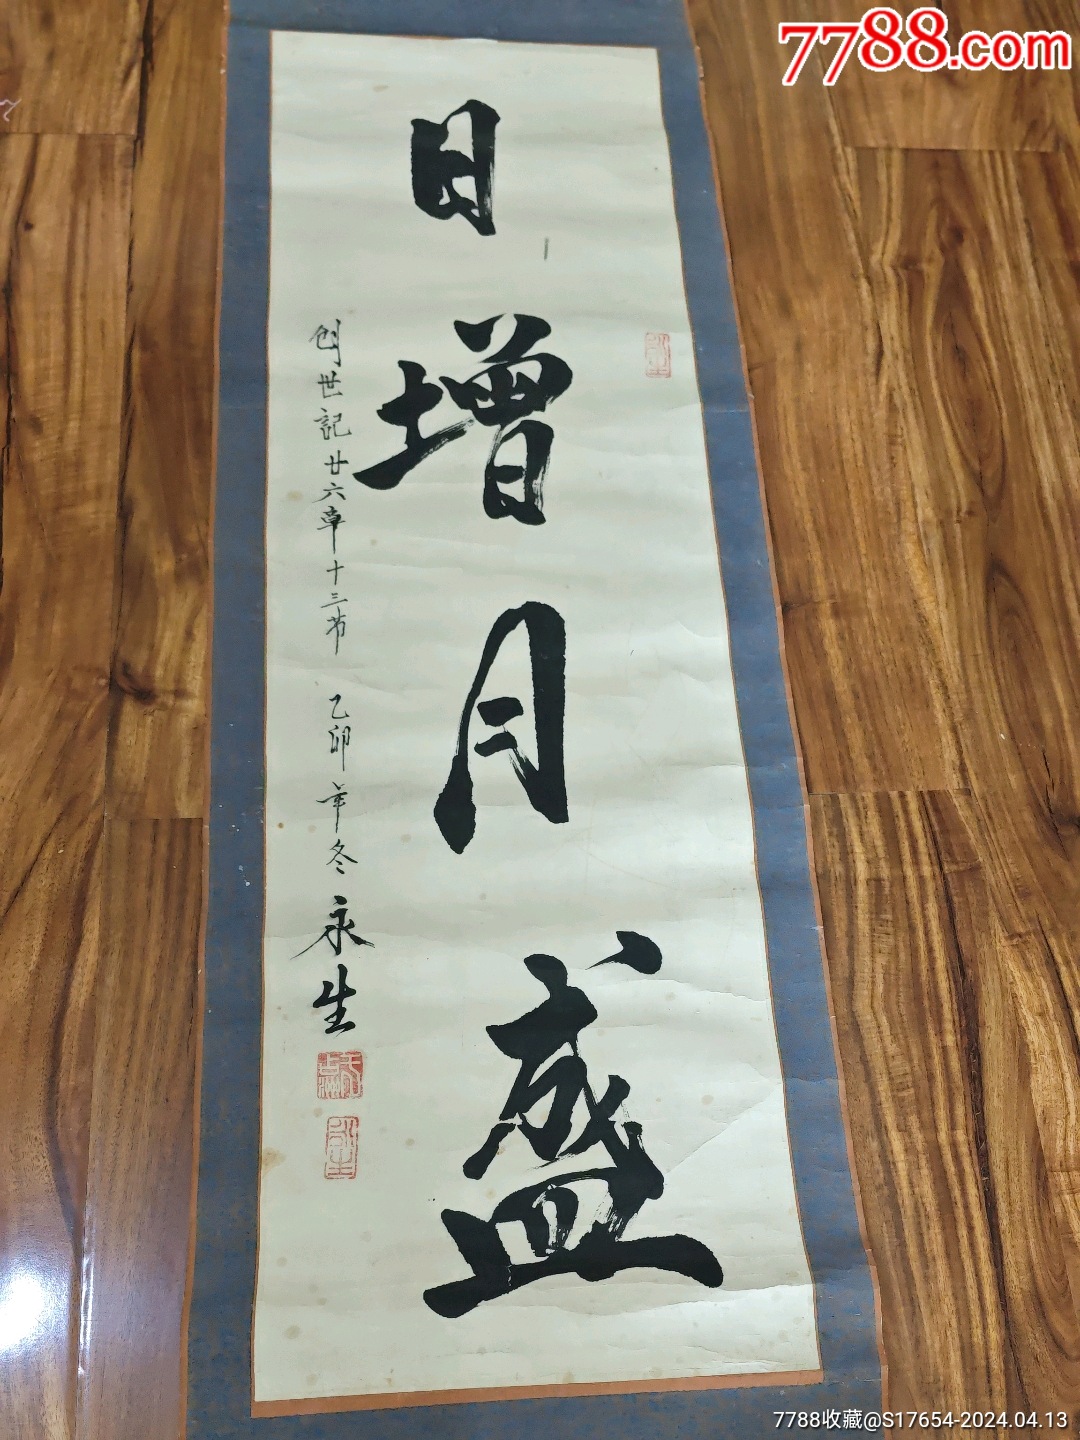 7788.com
日增月盛
創世記廿六章十三节 乙卯年冬 永生
7788收藏@S17654-2024.04.13